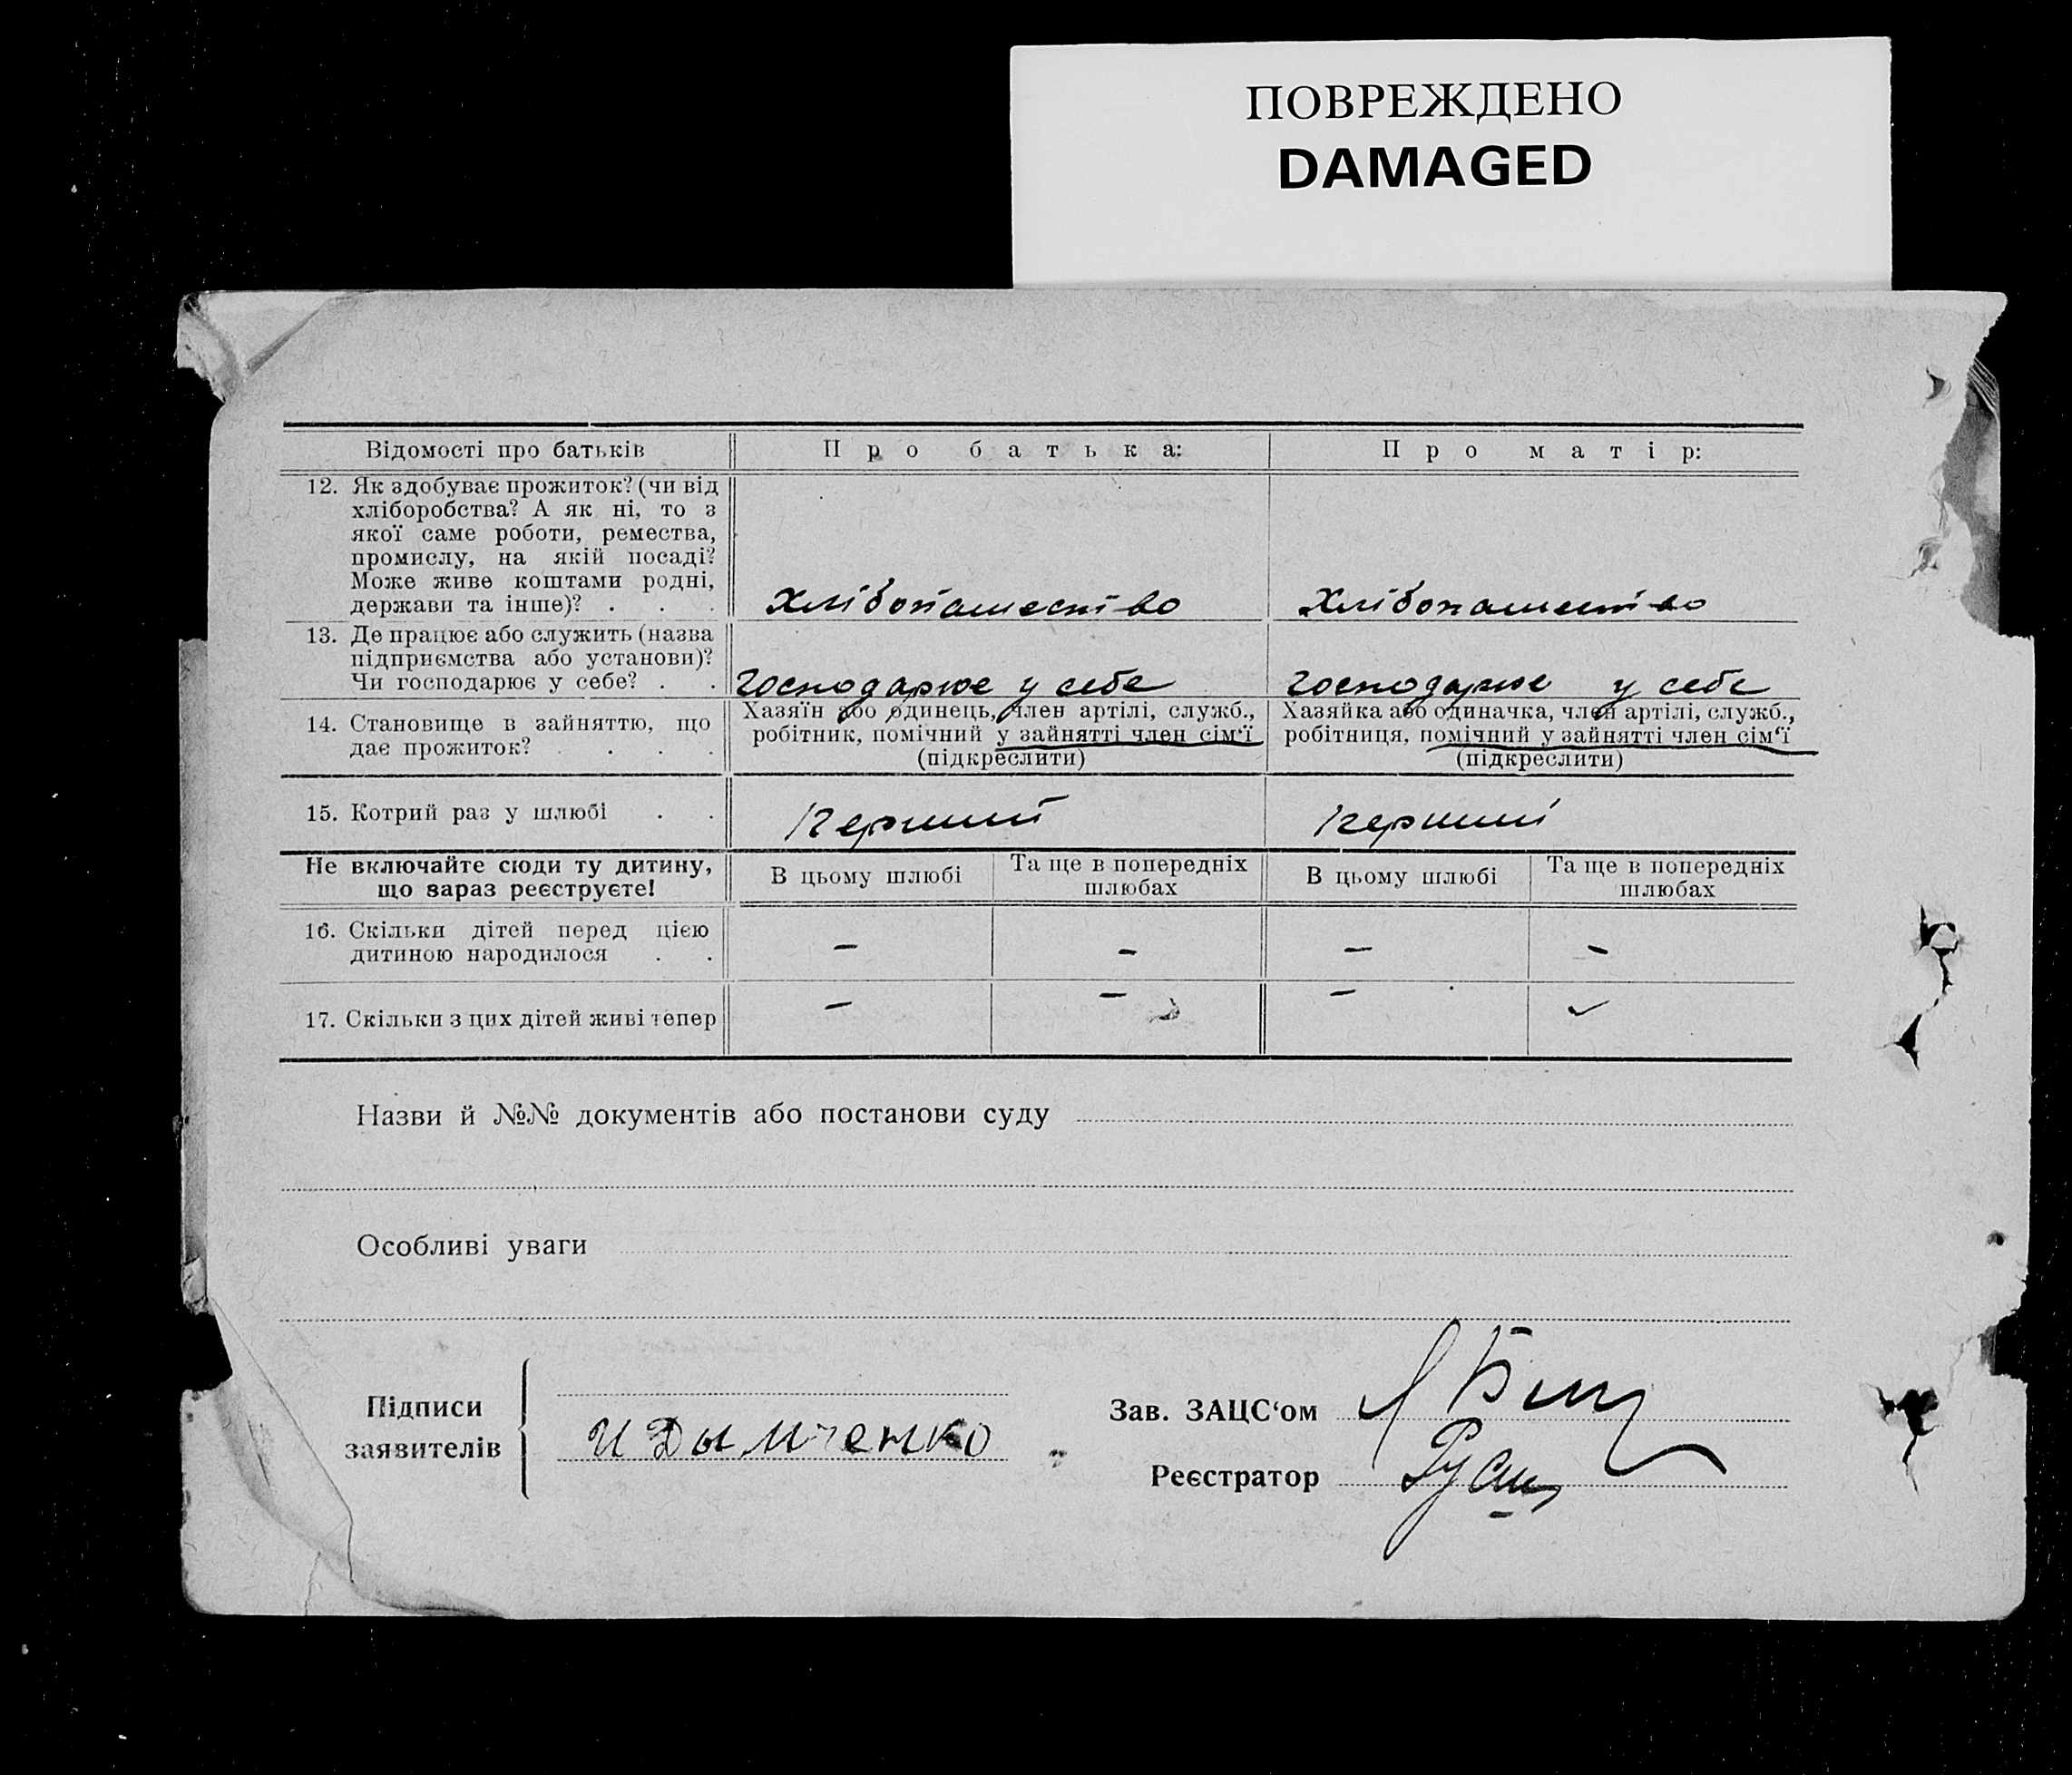 ПОВРЕЖДЕНО
DAMAGED
Відомості про батьків
Про батька:
Про матір:
12. Як здобуває прожиток? (чи від
хліборобства? А як ні, то з
якої саме роботи, ремества,
промислу, на якій посаді?
Може живе коштами родні,
держави та інше)? . . .
Хлібопашество
Хлібопашество
13. Де працює або служить (назва
підприємства або установи)?
Чи господарює у себе? . .
Господарює у себе
Господарює у себе
14. Становище в зайняттю, що
дає прожиток? . . . .
Хазяїн або одинець, член артілі, служб.,
робітник, помічний у зайнятті член сім‘ї
(підкреслити)
Хазяйка або одиначка, член артілі, служб.,
робітниця, помічний у зайнятті член сім‘ї
(підкреслити)
15. Котрий раз у шлюбі . .
Перший
Перший
Не включайте сюди ту дитину,
що зараз реєструєте!
В цьому шлюбі
Та ще в попередніх
шлюбах
В цьому шлюбі
Та ще в попередніх
шлюбах
16. Скільки дітей перед цією
дитиною народилося . .
– – – –
17. Скільки з цих дітей живі тепер
– – – –
Назви й №№ документів або постанови суду
Особливі уваги
Підписи
заявителів
И Дымченко
Зав. ЗАЦС‘ом
Реєстратор